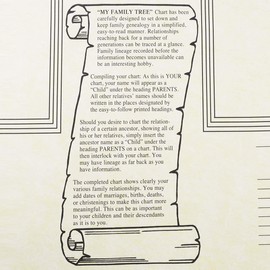 "MY FAMILY TREE" Chart has been
carefully designed to set down and
keep family genealogy in a simplified,
easy-to-read manner. Relationships
reaching back for a number of
generations can be traced at a glance.
Family lineage recorded before the
information becomes unavailable can
be an interesting hobby.
Compiling your chart: As this is YOUR
chart, your name will appear as a
"Child" under the heading PARENTS.
All other relatives' names should be
written in the places designated by
the easy-to-follow printed headings.
Should you desire to chart the relation-
ship of a certain ancestor, showing all of
his or her relatives, simply insert the
ancestor name as a "Child" under the
heading PARENTS on a chart. This will
then interlock with your chart. You
may have lineage as far back as you
have information.
The completed chart shows clearly your
various family relationships. You may
add dates of marriages, births, deaths,
or christenings to make this chart more
meaningful. This can be as important
to your children and their descendants
as it is to you.